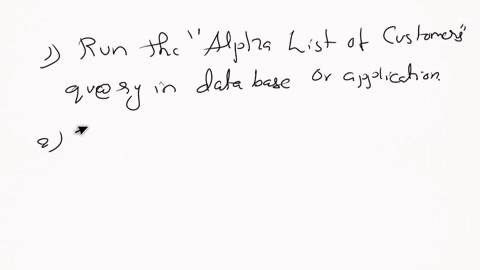 1) Run the "Alpha List of Customers"
query in data base or application.
2)